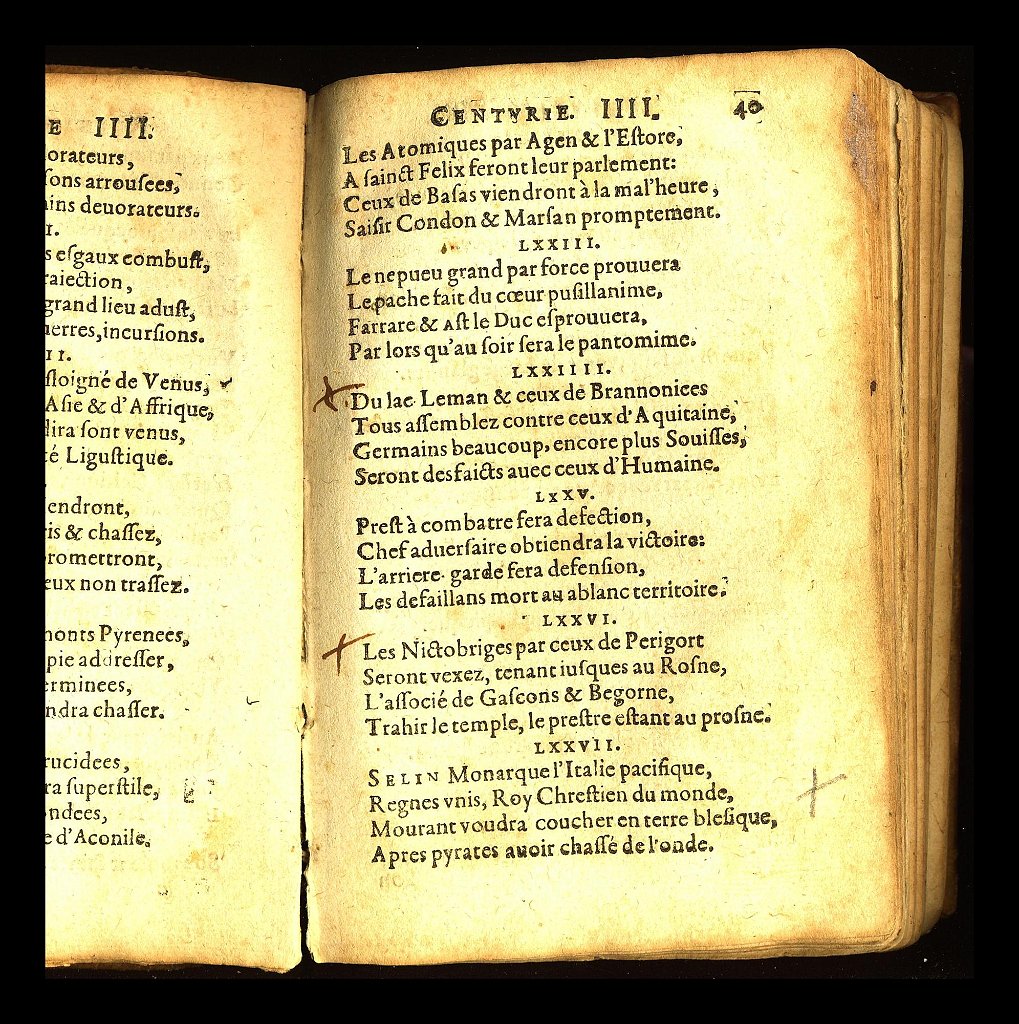 E IIII.
orateurs,
ſons arrouſees,
ins deuorateurs.
I.
s eſgaux combuſt,
raiection,
grand lieu aduſt,
uerres, incurſions.
II.
ſloigné de Venus,
Aſie & d'Affrique,
dira ſont venus,
té Liguſtique.
endront,
ris & chaſſez,
promettront,
eux non traſſez.
monts Pyrenees,
pie addreſſer,
erminees,
ndra chaſſer.
rucidees,
ra ſuperſtile,
ondees,
e d'Aconile.
CENTVRIE. IIII. 40
Les Atomiques par Agen & l'Eſtore,
A ſainct Felix feront leur parlement:
Ceux de Baſas viendront à la mal'heure,
Saiſir Condon & Marſan promptement.
LXXIII.
Le nepueu grand par force prouuera
Le pache fait du cœur puſillanime,
Farrare & Aſt le Duc eſprouuera,
Par lors qu'au ſoir ſera le pantomime.
LXXIIII.
Du lac Leman & ceux de Brannonices
Tous aſſemblez contre ceux d'Aquitaine,
Germains beaucoup, encore plus Souiſſes,
Seront desfaicts auec ceux d'Humaine.
LXXV.
Preſt à combatre fera defection,
Chef aduerſaire obtiendra la victoire:
L'arriere garde fera defenſion,
Les defaillans mort au ablanc territoire.
LXXVI.
Les Nictobriges par ceux de Perigort
Seront vexez, tenant iuſques au Roſne,
L'aſſocié de Gaſcons & Begorne,
Trahir le temple, le preſtre eſtant au proſne.
LXXVII.
SELIN Monarque l'Italie pacifique,
Regnes vnis, Roy Chreſtien du monde,
Mourant voudra coucher en terre bleſique,
Apres pyrates auoir chaſſé de l'onde.